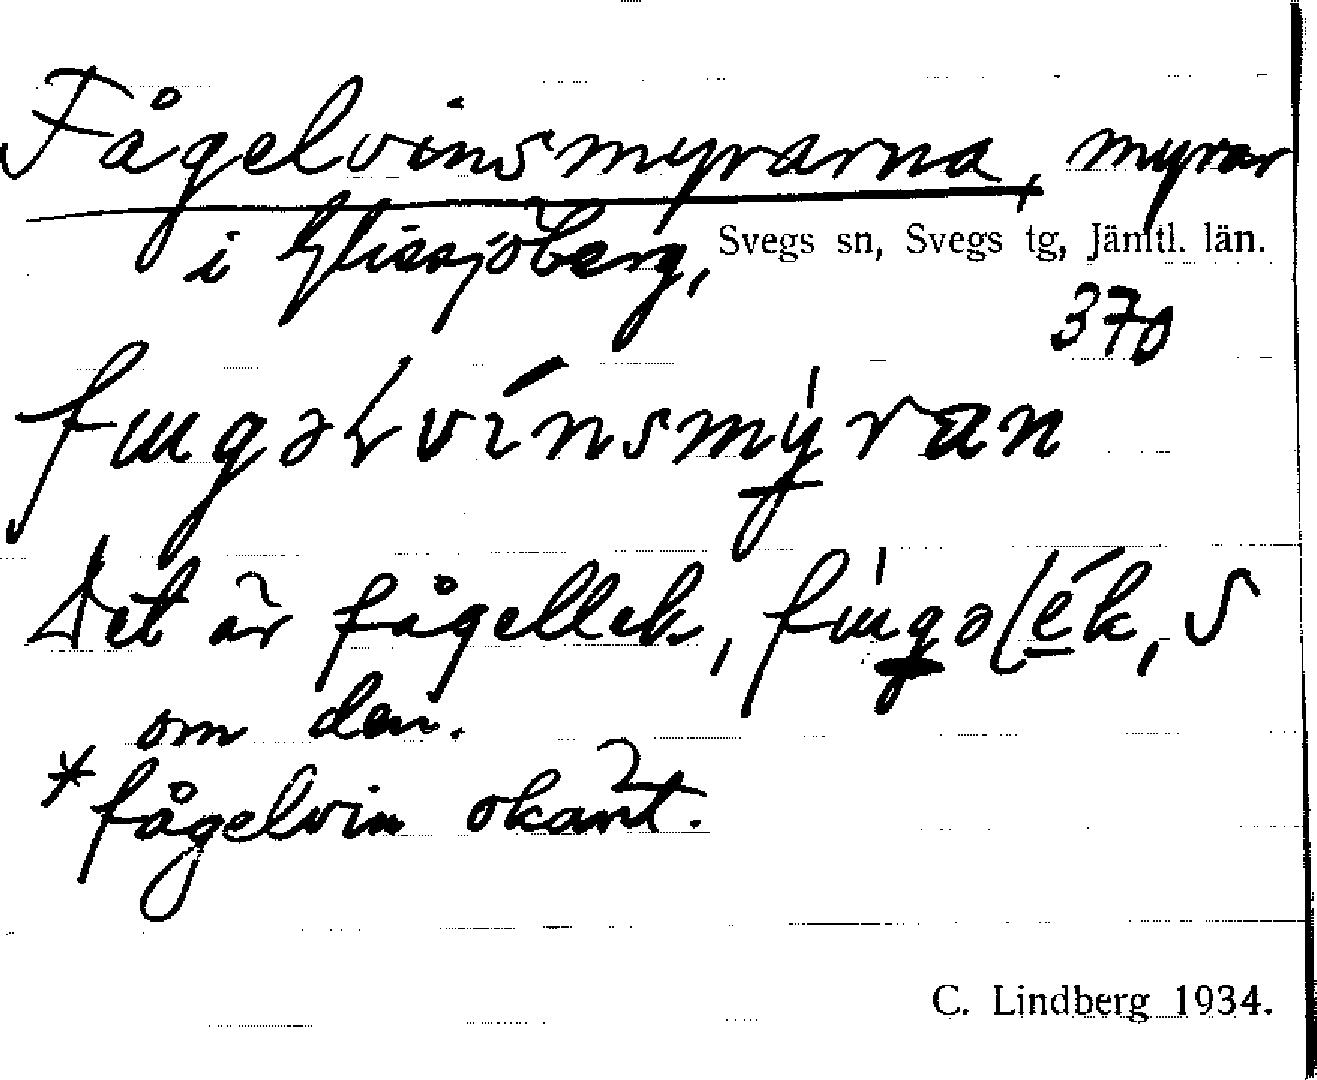 Fågelvinsmyrarna, myrar
i Glissjöberg, Svegs sn, Svegs tg, Jämtl. län.
370
Det är fågellek,
om den.
* fågelvin okänt.
C. Lindberg 1934.